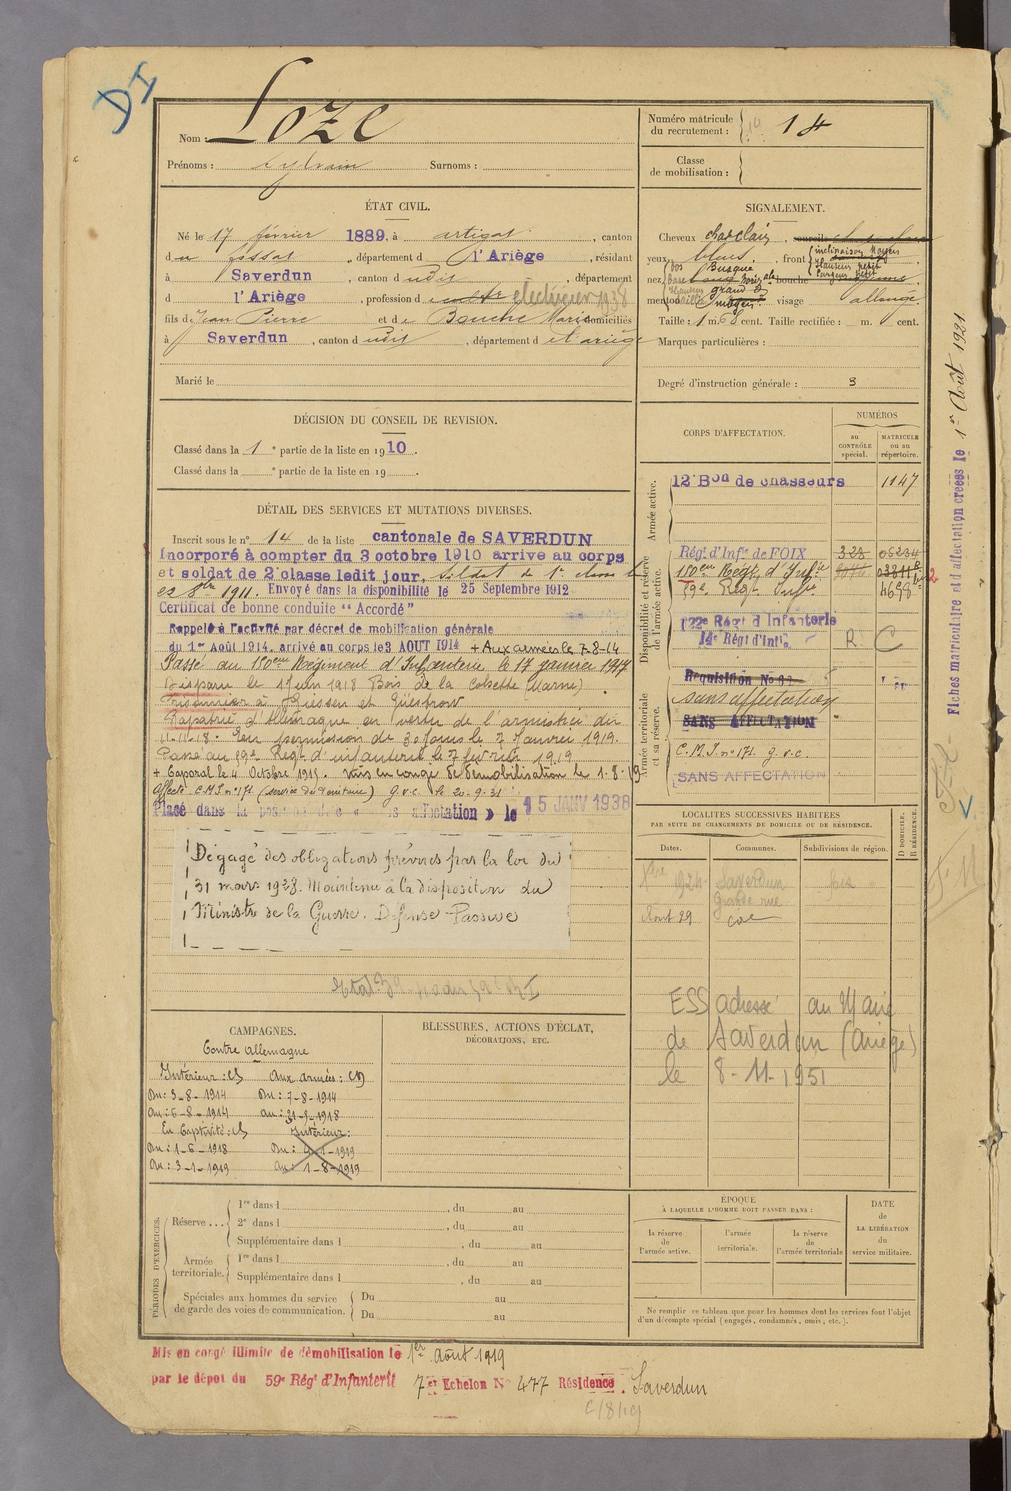 DI
Nom : Loze
Prénoms : Sylvain Surnoms :
Numéro matricule
du recrutement : 14
Classe
de mobilisation :
ÉTAT CIVIL.
Né le 17 février 1889, à artigat, canton
du fossat, département d l'Ariège, résidant
à Saverdun, canton d udit, département
d l'Ariège, profession d electricien 1938
fils de Jean Pierre et de Bouche Marie domiciliés
à Saverdun, canton d udit, département d e l'ariège
Marié le
SIGNALEMENT.
Cheveux chat clair, sourcils
yeux bleus, front inclinaison Moyen
Hauteur petit
Largeur petit
nez dos Busque
Base horiz ale bouche
Hauteur grand
menton saillie moyen visage allongé
Taille : 1 m. 68 cent. Taille rectifiée : m. cent.
Marques particulières :
Degré d'instruction générale : 3
DÉCISION DU CONSEIL DE REVISION.
Classé dans la 1e partie de la liste en 1910.
Classé dans la e partie de la liste en 19 .
CORPS D'AFFECTATION.
NUMÉROS
au
CONTRÔLE
spécial.
MATRICULE
ou au
répertoire.
Armée active.
12e Bon de chasseurs 1147
Disponibilité et réserve
de l'armée active.
Régt d'Infie de FOIX 323 05234
150eme Regt d'Infie
59e Regt Infie 4698
122e Régt d'Infanterie
14e Régt d'Infie R. C
Armée territoriale
et sa réserve.
Requisition No
sans affectation
SANS AFFECTATION
C.M.I. n° 171. g.v.c.
SANS AFFECTATION
DÉTAIL DES SERVICES ET MUTATIONS DIVERSES.
Inscrit sous le n° 14 de la liste cantonale de SAVERDUN
Incorporé à compter du 3 octobre 1910 arrive au corps
et soldat de 2e classe ledit jour, Soldat de 1e classe le
1911. Envoyé dans la disponibilité le 25 Septembre 1912
Certificat de bonne conduite "Accordé"
Rappelé à l'activité par décret de mobilisation générale
du 1er Août 1914, arrivé au corps le 3 AOUT 1914 + Aux armées le 7-8-14
Passé au 150eme Régiment d'Infanterie le 17 janvier 1917
Disparu le 1 Juin 1918 Bois de la (Marne)
Prisonnier à Giessen et Güstrow
Rapatrié d'Allemagne en vertu de l'armistice du
11-11-18. En permission de 30 jours le 7 Janvier 1919.
Passé au 59e Régt d'infanterie le 7 février 1919
+ Caporal le 4 Octobre 1915. Mis en congé de démobilisation le 1-8-19
Affecté C.M.I. n° 171 (service du Territoire) g.v.c. le 20-9-31
Placé dans la position dite « sans affectation » le 15 JANV 1938
Dégagé des obligations prévues par la loi du
31 mars 1928. Maintenu à la disposition du
Ministre de la Guerre. Défense Passive
LOCALITÉS SUCCESSIVES HABITÉES
PAR SUITE DE CHANGEMENTS DE DOMICILE OU DE RÉSIDENCE.
Dates. Communes. Subdivisions de région. D DOMICILE. R RÉSIDENCE.
1924 Saverdun Foix
Grande rue
Aout 29
ESS adressé au Maire
de Saverdun (Ariège)
le 8-11-1951
CAMPAGNES.
Contre Allemagne
Intérieur : CS Aux armées : CD
Du : 3-8-1914 Du : 7-8-1914
Au : 6-8-1914 au : 31-5-1918
En Captivité : CS Intérieur :
Du : 1-6-1918 Du : 4-1-1919
Au : 3-1-1919 au : 1-8-1919
BLESSURES, ACTIONS D'ÉCLAT,
DÉCORATIONS, ETC.
PÉRIODES D'EXERCICES.
Réserve . . .
1re dans l , du au
2e dans l , du au
Supplémentaire dans l , du au
Armée
territoriale.
1re dans l , du au
Supplémentaire dans l , du au
Spéciales aux hommes du service
de garde des voies de communication.
Du au
Du au
ÉPOQUE
À LAQUELLE L'HOMME DOIT PASSER DANS :
la réserve
de
l'armée active.
l'armée
territoriale.
la réserve
de
l'armée territoriale
DATE
de
LA LIBÉRATION
du
service militaire.
Ne remplir ce tableau que pour les hommes dont les services font l'objet
d'un décompte spécial (engagés, condamnés, omis, etc.).
Mis en congé illimité de démobilisation le 1er Août 1919
par le dépôt du 59e Régt d'Infanterie 7er Echelon N° 477 Résidence : Saverdun
Fiches matriculaire et d'affectation créées le 1er Août 1921